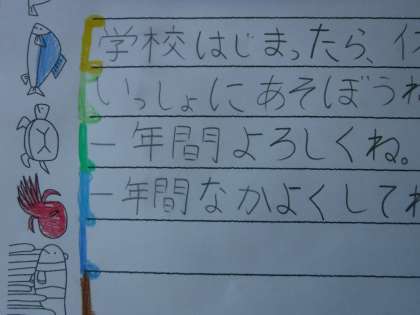 学校はじまったら、
いっしょにあそぼうね
一年間よろしくね。
一年間なかよくしてね